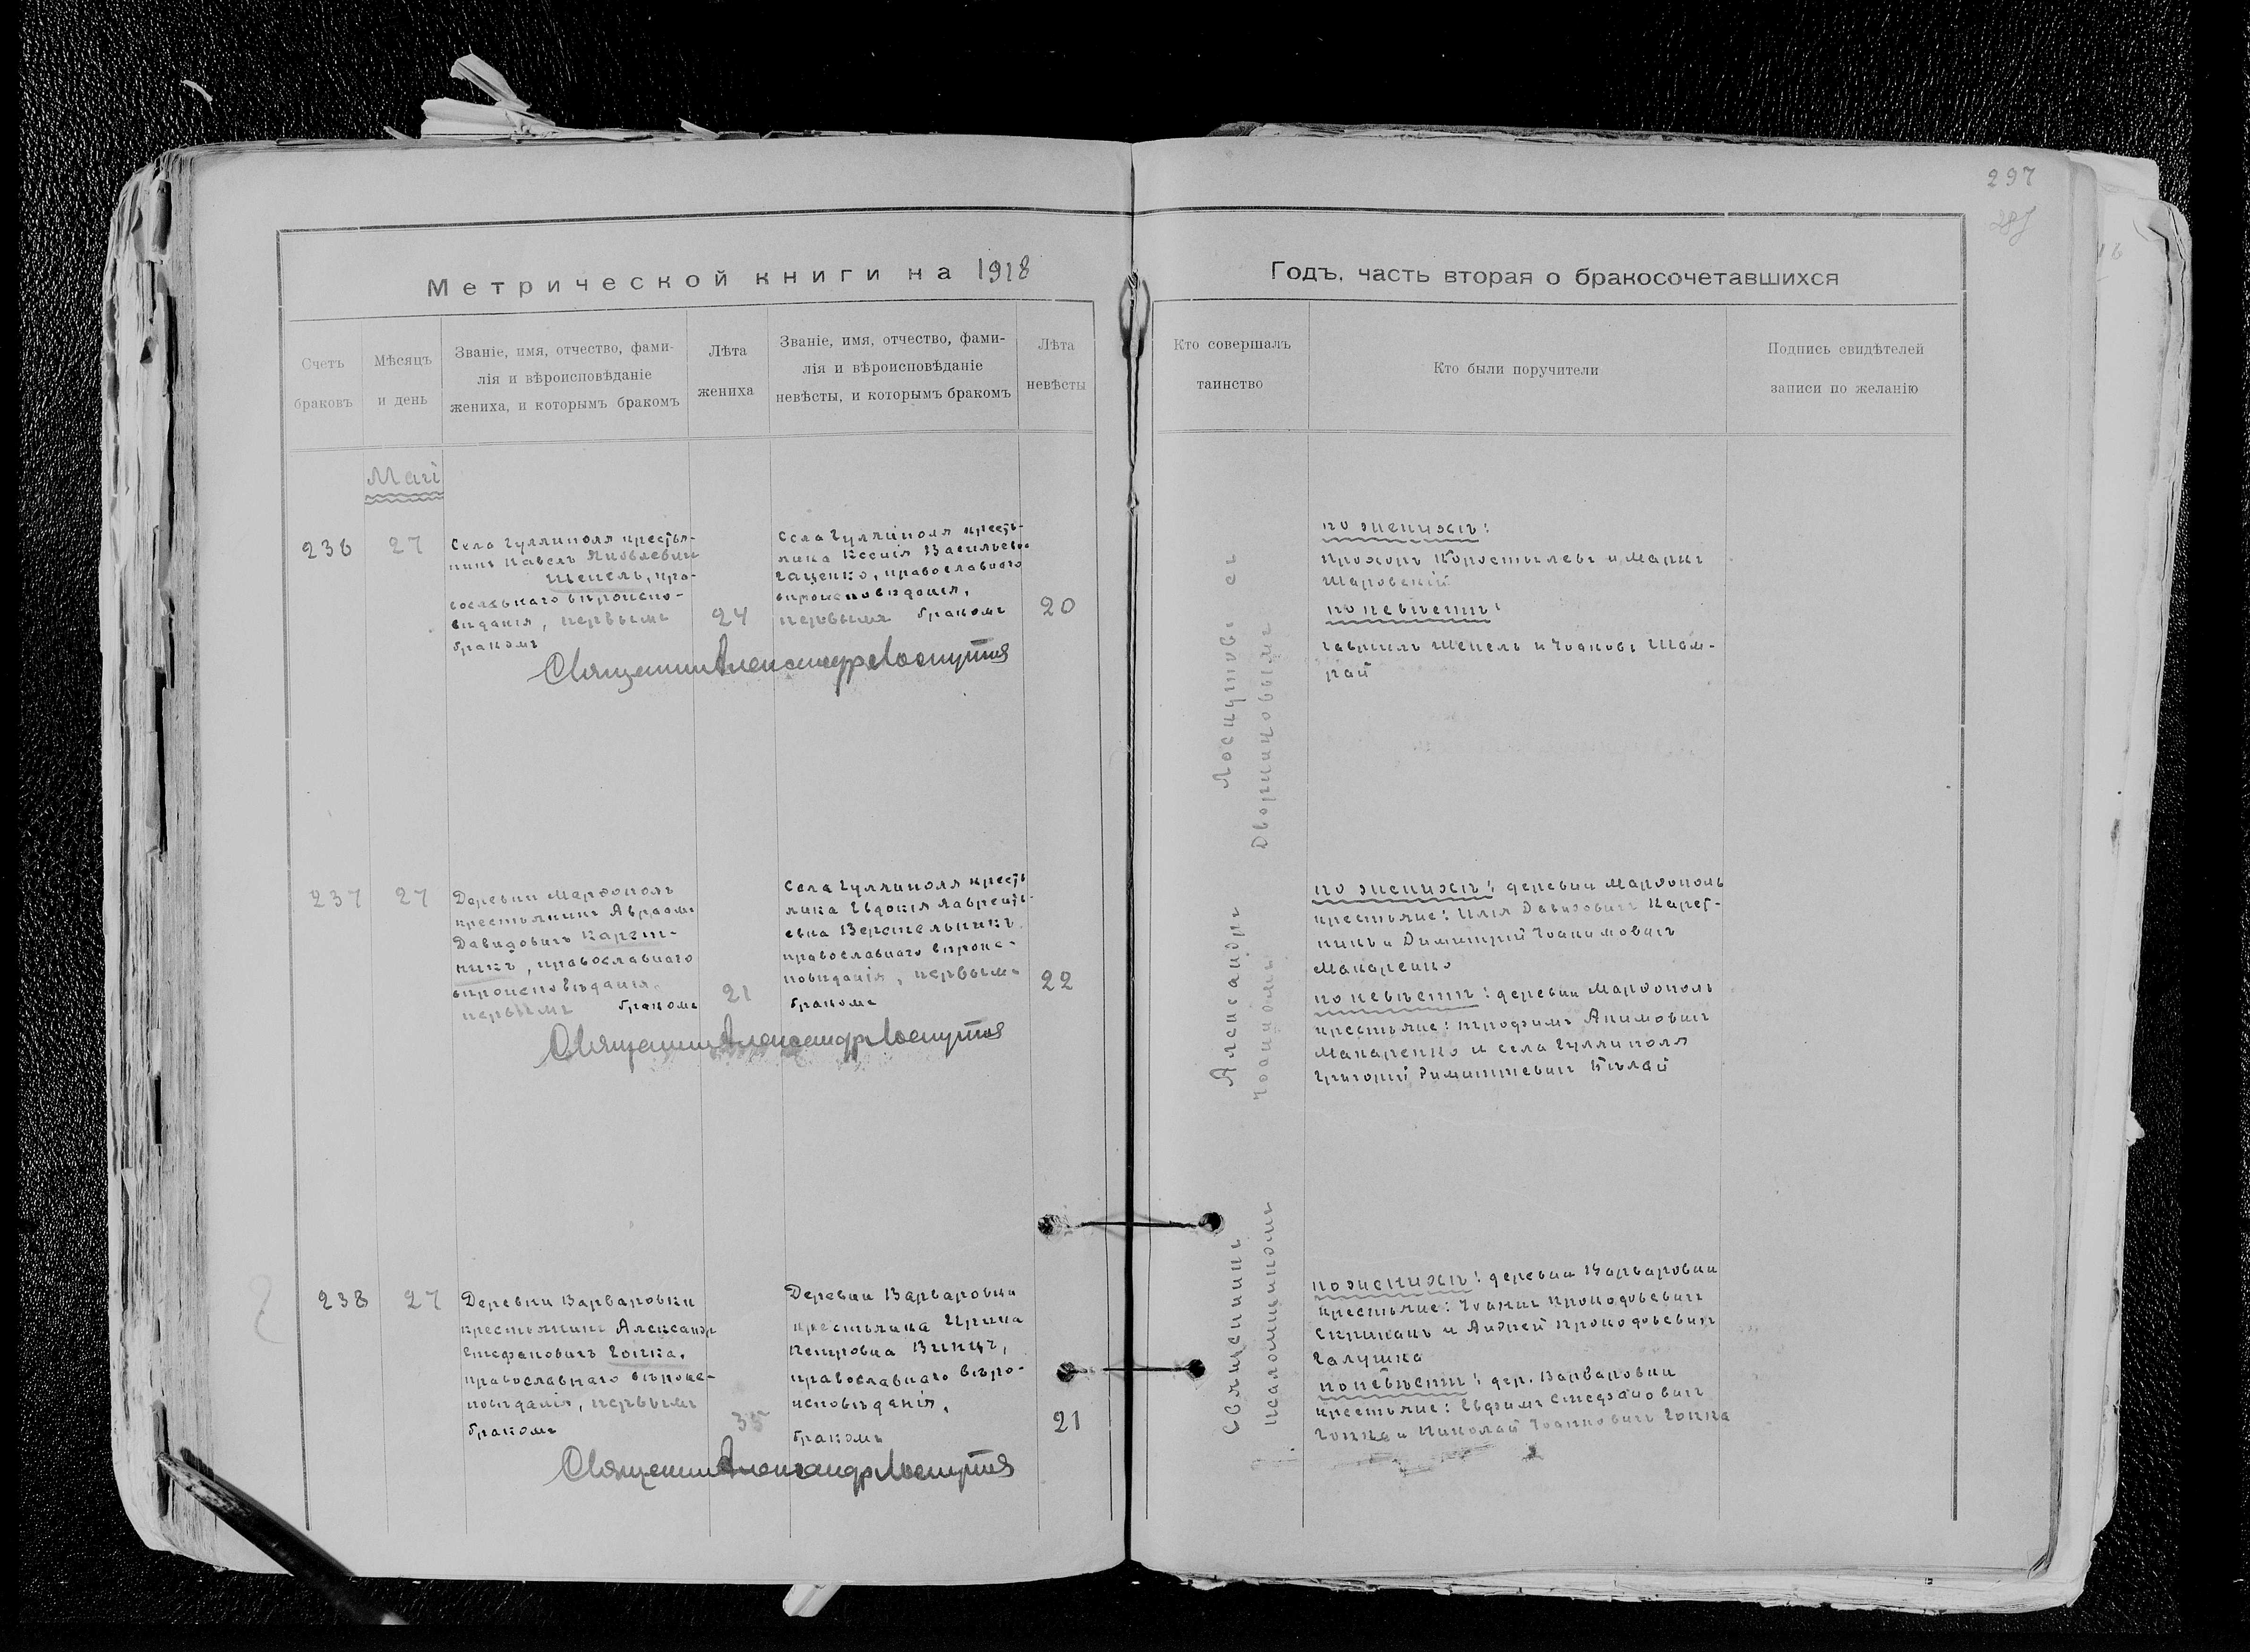 297
287
Метрической книги на 1918
Годъ, часть вторая о бракосочетавшихся
Счетъ
браковъ
Мѣсяцъ
и день
Званіе, имя, отчество, фами-
лія и вѣроисповѣданіе
жениха, и которымъ бракомъ
Лѣта
жениха
Званіе, имя, отчество, фами-
лія и вѣроисповѣданіе
невѣсты, и которымъ бракомъ
Лѣта
невѣсты
Кто совершалъ
таинство
Кто были поручители
Подпись свидѣтелей
записи по желанію
Маій
236
27
Села Гуляиполя крестья-
нинъ Павелъ Яковлевичъ
Шепель, пра-
вославнаго вѣроиспо-
вѣданія, первымъ
бракомъ
24
Села Гуляиполя кресть-
янка Ксенія Васильевна
Гаценко, православнаго
вѣроисповѣданія,
первымъ бракомъ
20
Священник Александр Лоскутов
по женихѣ:
Прохоръ Коростылевъ и Маркъ
Шаровскій
по невѣстѣ:
Гавріилъ Шепель и Іоаннъ Шам-
рай
237
27
Деревни Марфополь
крестьянинъ Авраамъ
Давидовичъ Карет-
никъ, православнаго
вѣроисповѣданія,
первымъ бракомъ
21
Села Гуляиполя кресть
янка Евдокія Лаврентъ-
евна Верстельникъ
православнаго вѣроис-
повѣданія, первымъ
бракомъ
22
Священник Александр Лоскутов
по женихѣ: деревни Марфополь
крестьяне: Илія Давидовичъ Карет-
никъ и Димитрій Іоакимовичъ
Макаренко
по невѣстѣ: деревни Марфополь
крестьяне: Трофимъ Акимовичъ
Макаренко и села Гуляиполя
Григорій Димитріевичъ Бѣлай
238
27
Деревни Варваровки
крестьянинъ Александръ
Стефановичъ Гопка,
православнаго вѣроис-
повѣданія, первымъ
бракомъ
35
Деревни Варваровки
крестьянка Ирина
Петровна Винцъ,
православнаго вѣро-
исповѣданія,
бракомъ
21
Священник Александр Лоскутов
по женихѣ: деревни Варваровки
крестьяне: Іоаннъ Прокофьевичъ
Скрипакъ и Андрей Прокофьевичъ
Галушка
по невѣстѣ: дер. Варваровки
крестьяне: Евфимъ Стефановичъ
Гопка и Николай Іоанновичъ Гопка
Священникъ Александръ Лоскутовъ съ
псаломщикомъ Іоанномъ Дворниковымъ